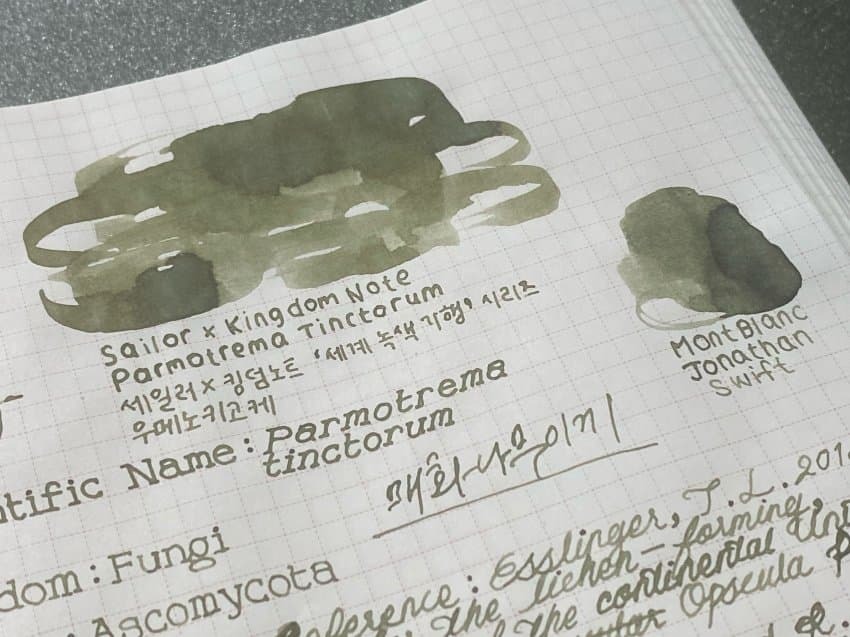 Sailor x Kingdom Note
Parmotrema Tinctorum
세일러 x 킹덤노트 '세계 녹색 기행' 시리즈
우메노키고케
MontBlanc
Jonathan
Swift
ntific Name: Parmotrema
tinctorum
매화나무이끼
dom: Fungi
Ascomycota
Reference: Esslinger, T. L. 201
The lichen-forming,
the continental
Opscula